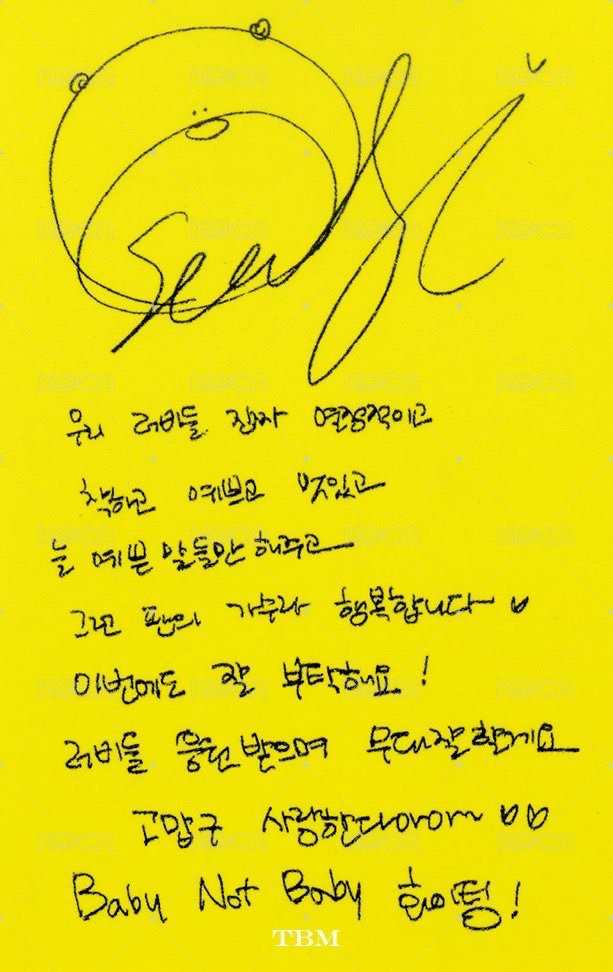 우리 러비들 진짜 열정적이고
착하고 예쁘고 멋있고
늘 예쁜 말들만 해주고
그런 팬의 가수라 행복합니다~
이번에도 잘 부탁해요!
러비들 응원받으며 무대잘할게요
고맙구 사랑한다아아~
Baby Not Baby 화이팅!
TBM